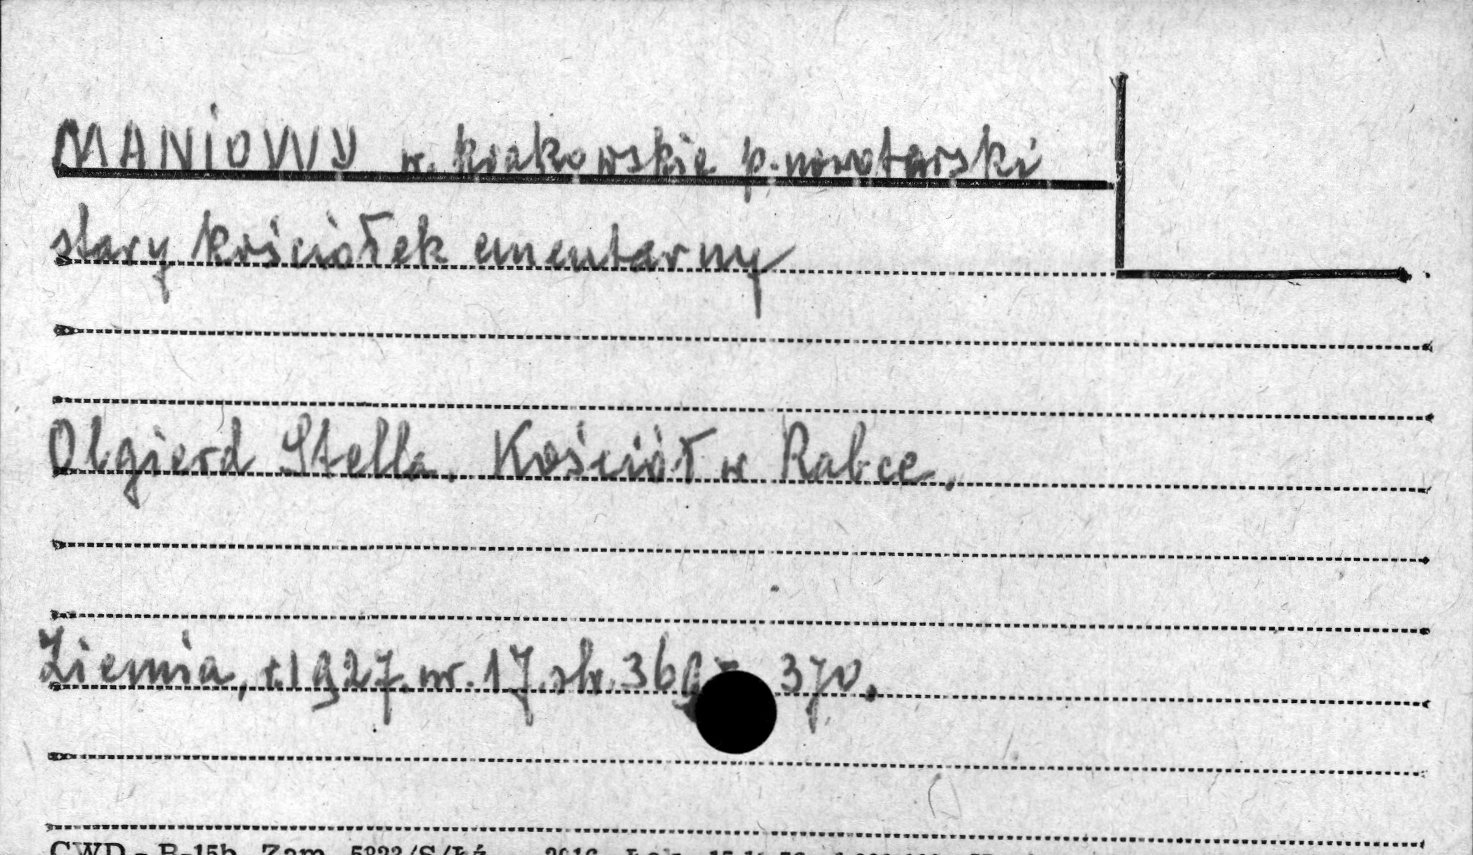 MANIOWY w. krakowskie p. nowotarski
stary kościołek cmentarny
Olgierd Stella. Kościół w Rabce.
Ziemia, r. 1927. nr. 17. str. 369 - 370.
CWD - B-15b. Zam. 5822/S/Łź